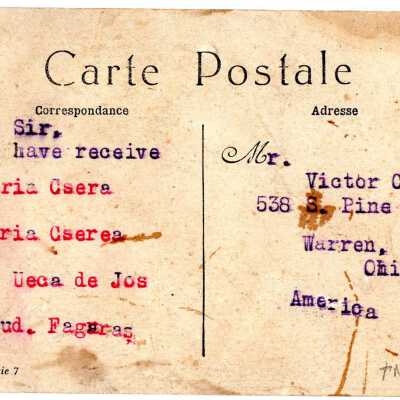 Carte Postale
Correspondance
Sir,
have receive
ria Csera
ria Cserea
Ueca de Jos
ud. Fagaraş
ie 7
Adresse
Mr.
Victor C
538 S. Pine
Warren,
Ohi
America